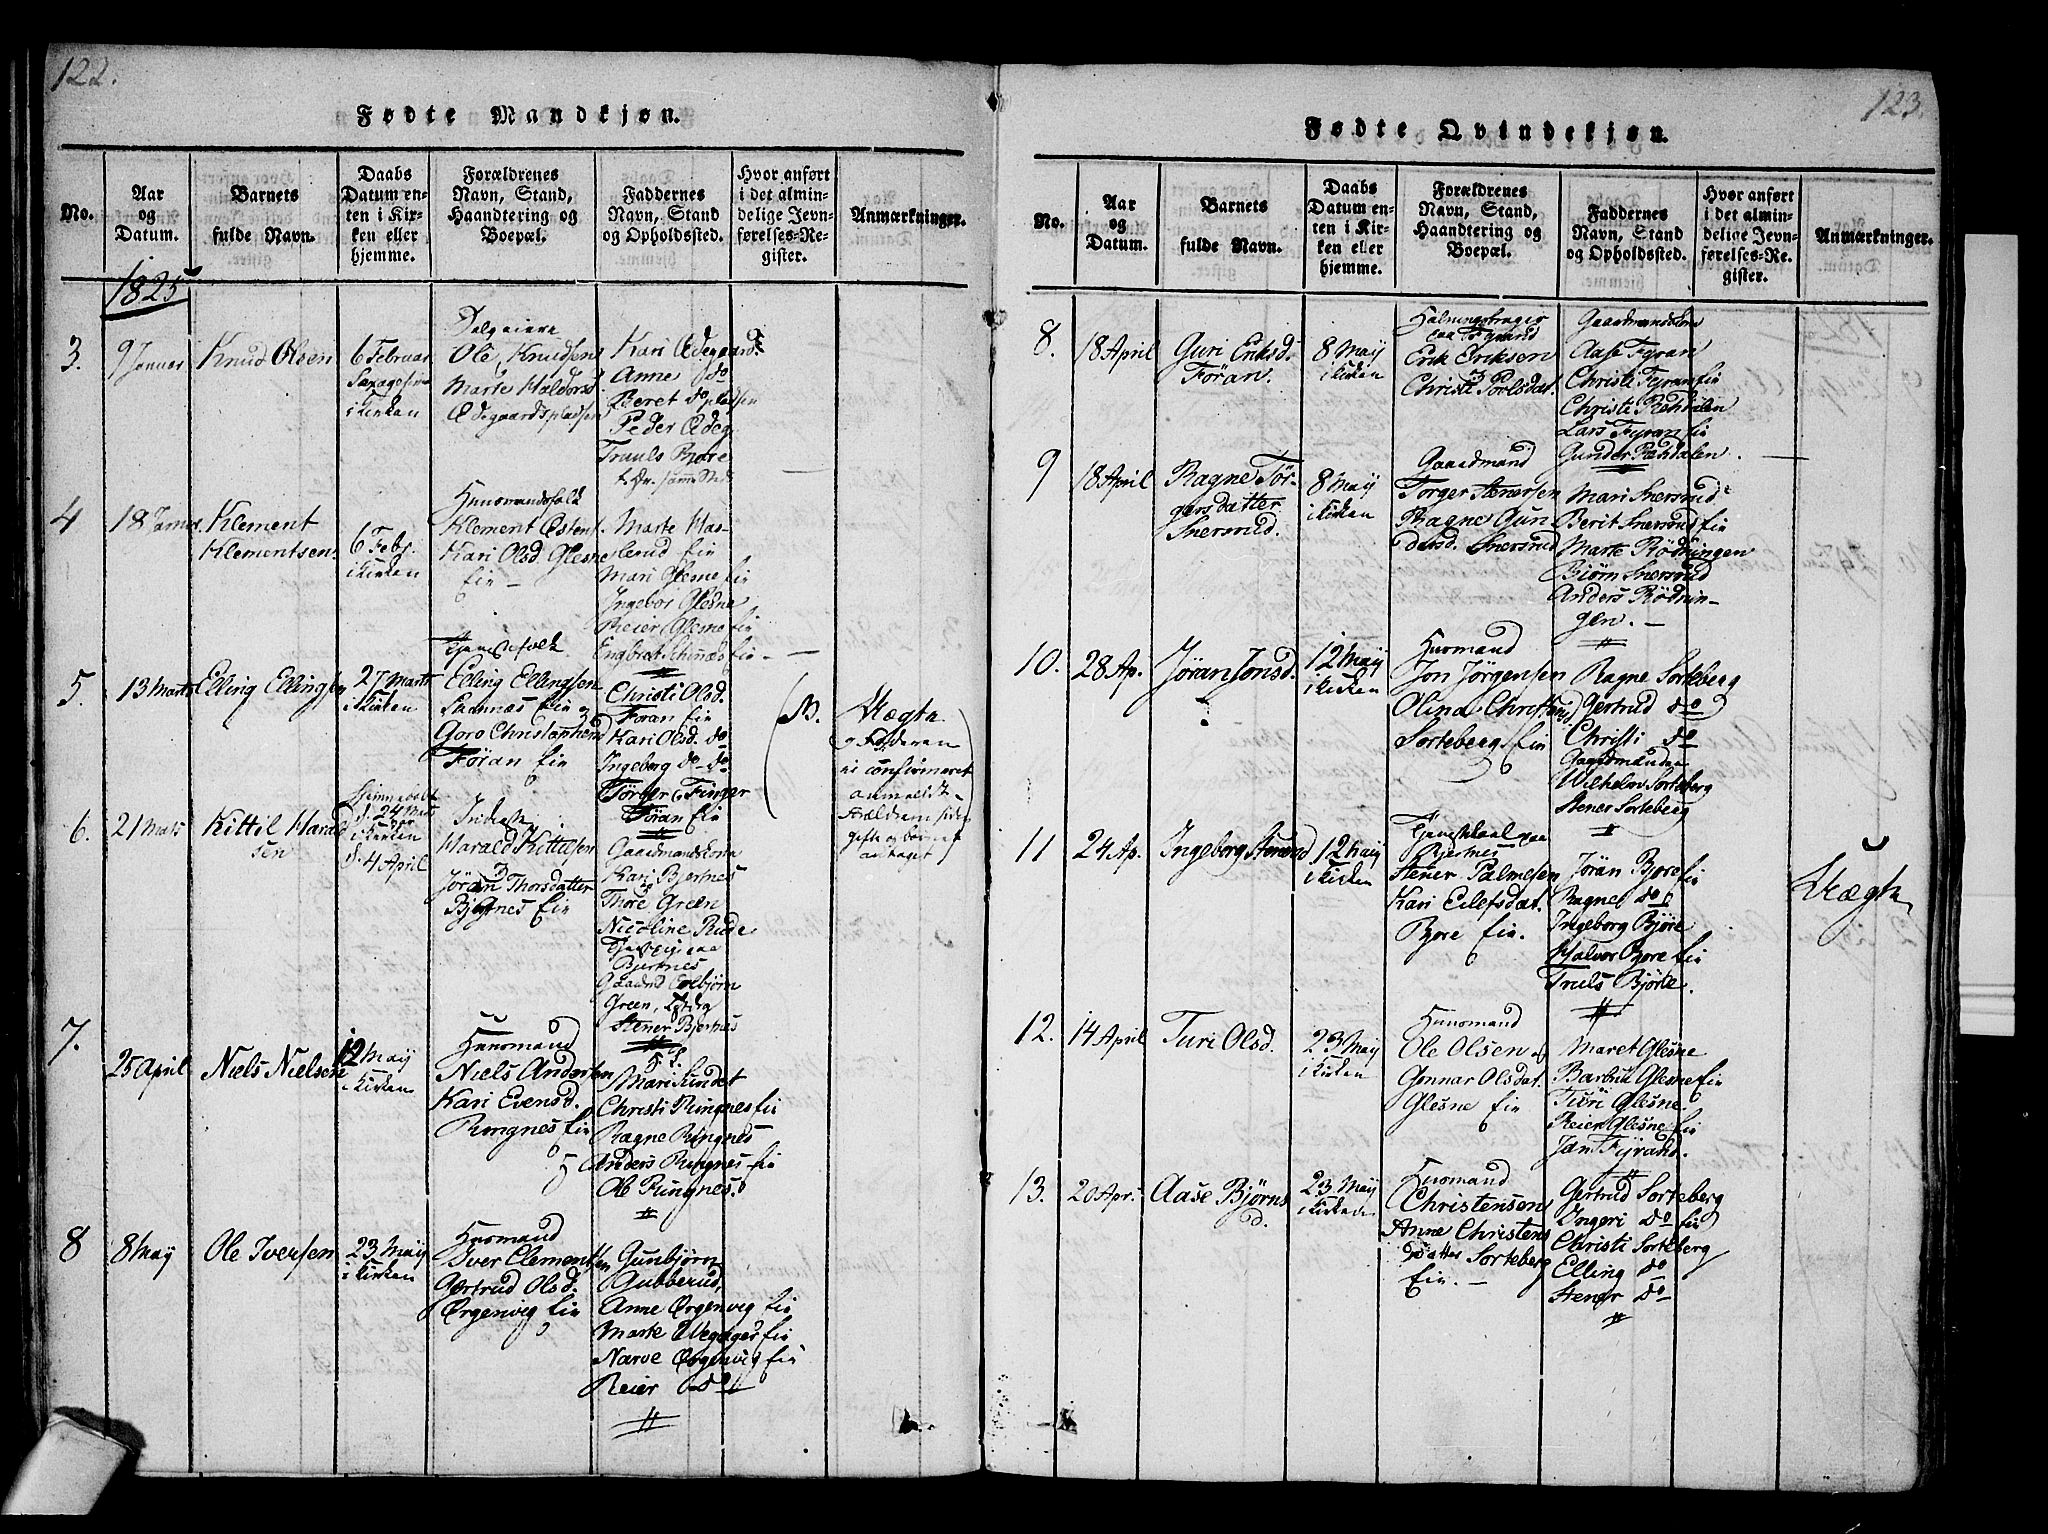 122.
Fødte Mandkjøn.
No.
Aar
og
Datum.
Barnets
fulde Navn.
Daabs
Datum en-
ten i Kir-
ken eller
hjemme.
Forældrenes
Navn, Stand,
Haandtering og
Boepæl.
Faddernes
Navn, Stand
og Opholdssted.
Hvor anført
i det almin-
delige Jevn-
førelses-Re-
gister.
Anmærkninger.
1825
3.
9 Januar
Knud Olsen
6 Februar
i Kirken
Ole Knudsen
Marte Haldorsd.
Ødegaardspladsen
Kari Ødegaard
Anne do
Beret do pladsen
Peder Ødeg.
Truuls Bjøre
4
18 Januar
Klement
Klementsen
6 Febr.
i Kirken
Huusmandsfolk
Klement Østens.
Kari Olsd. Glesne
Ein
Marte Has-
lerud Ein
Mari Glesne Ein
Ingebor Glesne
Reier Glesne Ein
Engbret
5.
13 Marts
Elling Ellings
27 Marts
i Kirken
Tjenestefolk
Elling Ellingsen
Ein
Goro Christophersd
Föran Ein
Christi Olsd.
Foran Ein
Kari Olsd. do
Ingeborg do do
Törger Finger
Föran Ein
NB.
Uægte
Faderen
confirmeret
anmeldt
6.
21 Marts
Kittil Harald
sen
d. 24 Marts
i Kirken
d. 4 April
Harald Kittilsen
Jöran Thorsdatter
Bjertnes Ein
Gaardmandskone
Kari Bjertnes
Thore Green
Nicoline Rude
Bjertnes
Green,
Stener Bjertnes
7.
25 April
Niels Nielsen
12 Maij
i Kirken
Huusmand
Niels Andersen
Kari Evensd.
Ringnes Ein
Mari
Christi Ringnes Ein
Ragne Ringnes
Anders Ringnes Ein
Ole Ringnes.
8
8 Maij
Ole Iversen
23 Maij
i Kirken
Huusmand
Iver Clementsen
Gertrud Olsd.
Ørgenvig Ein
Gunbjørn
Gubberud,
Anne Ørgenvig Ein
Marte
Narve Ørgenvig Ein
Reier do
123.
Fødte Qvindekjøn.
No.
Aar
og
Datum.
Barnets
fulde Navn.
Daabs
Datum en-
ten i Kir-
ken eller
hjemme.
Forældrenes
Navn, Stand,
Haandtering og
Boepæl.
Faddernes
Navn, Stand
og Opholdssted.
Hvor anført
i det almin-
delige Jevn-
førelses-Re-
gister.
Anmærkninger.
8.
18 April
Guri Eriksd.
Föran.
8 Maij
i Kirken
Erik Eriksen
Christi Povlsdat.
Gaardmandskone
Aase Fyran
Christi Fyran Ein
Christi
Lars Fyran Ein
Gunder
9
18 April
Ragne Tör-
gersdatter
Snersrud.
8 Maij
i Kirken
Gaardmand
Torger Stenersen
Ragne Gun-
dersd. Snersrud
Mari Snersrud
Berit Snersrud Ein
Marte Rödningen
Biörn Snersrud
Anders Rödnin-
gen.
10.
28 Ap.
Jøran Jonsd.
12 Maij
i Kirken
Huusmand
Jon Jörgensen
Olina Christensd
Sorteberg Ein
Ragne Sorteberg
Gertrud do
Christi do
Wilhelm Sorteberg
Stener Sorteberg
11
24 Ap.
Ingeborg Stenersd
12 Maij
i Kirken
Bjertnes
Stener Palmesen
Kari Eilefsdat.
Bjøre Ein.
Jöran Bjøre Ein
Ragne do
Ingeborg Björe
Halvor Bjøre Ein
Truls Björe.
Uægte
12.
14 April
Turi Olsd.
23 Maij
i Kirken
Huusmand
Ole Olsen og
Gonnar Olsdat.
Glesne Ein
Maret Glesne
Glesne Ein
Turi Glesne
Reier Glesne Ein
Jan Fyrand.
13.
20 Apr.
Aase Bjørns
d.
23 Maij
i Kirken
Huusmand
Christensen
Anne Christens
datter Sorteberg
Ein.
Gertrud Sorteberg
Ingeri do Ein
Christi Sorteberg
Elling do
Stener do